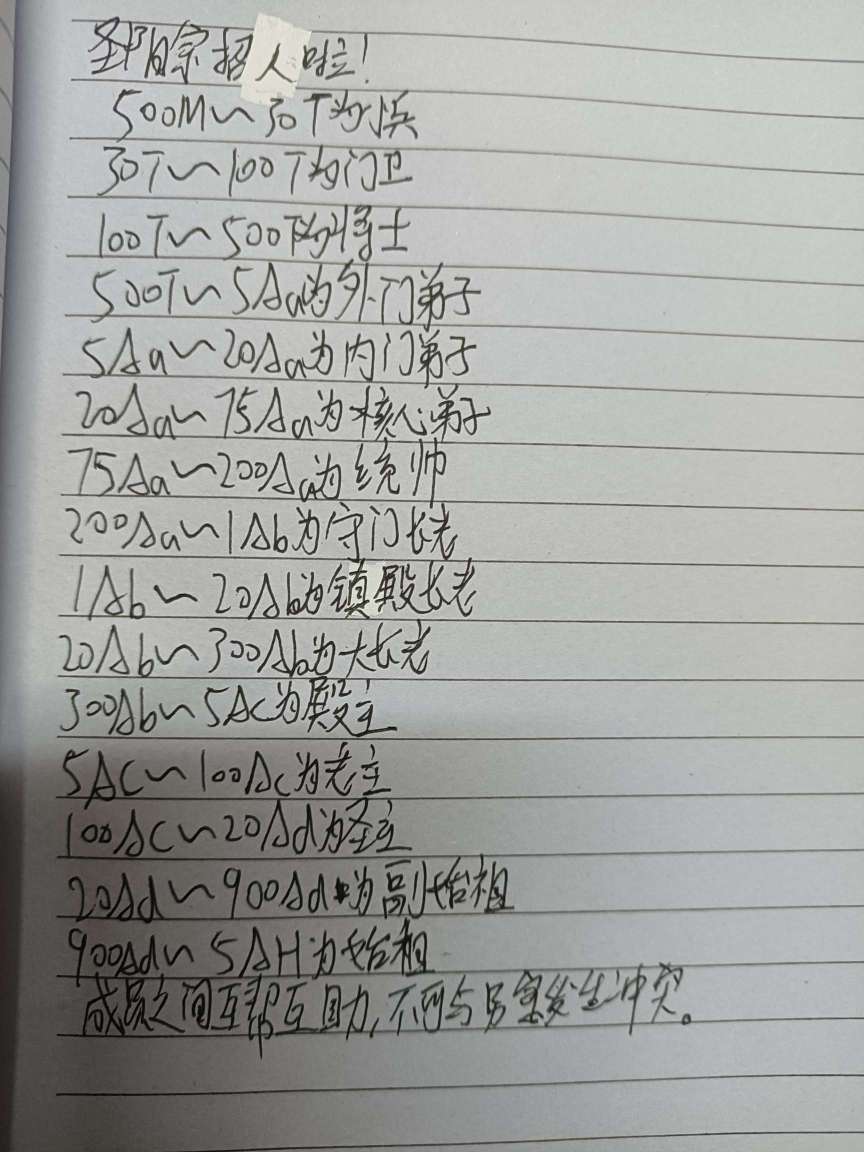 圣阳宗招人啦!
500M~30T为小兵
30T~100T为门卫
100T~500T为将士
500T~5Aa为外门弟子
5Aa~20Aa为内门弟子
20Aa~75Aa为核心弟子
75Aa~200Aa为统帅
200Aa~1Ab为守门长老
1Ab~20Ab为镇殿长老
20Ab~300Ab为大长老
300Ab~5Ac为殿主
5Ac~100Ac为老主
100Ac~20Ad为圣主
20Ad~900Ad为副始祖
900Ad~5AH为始祖
成员之间互帮互助,不可与宗发生冲突。